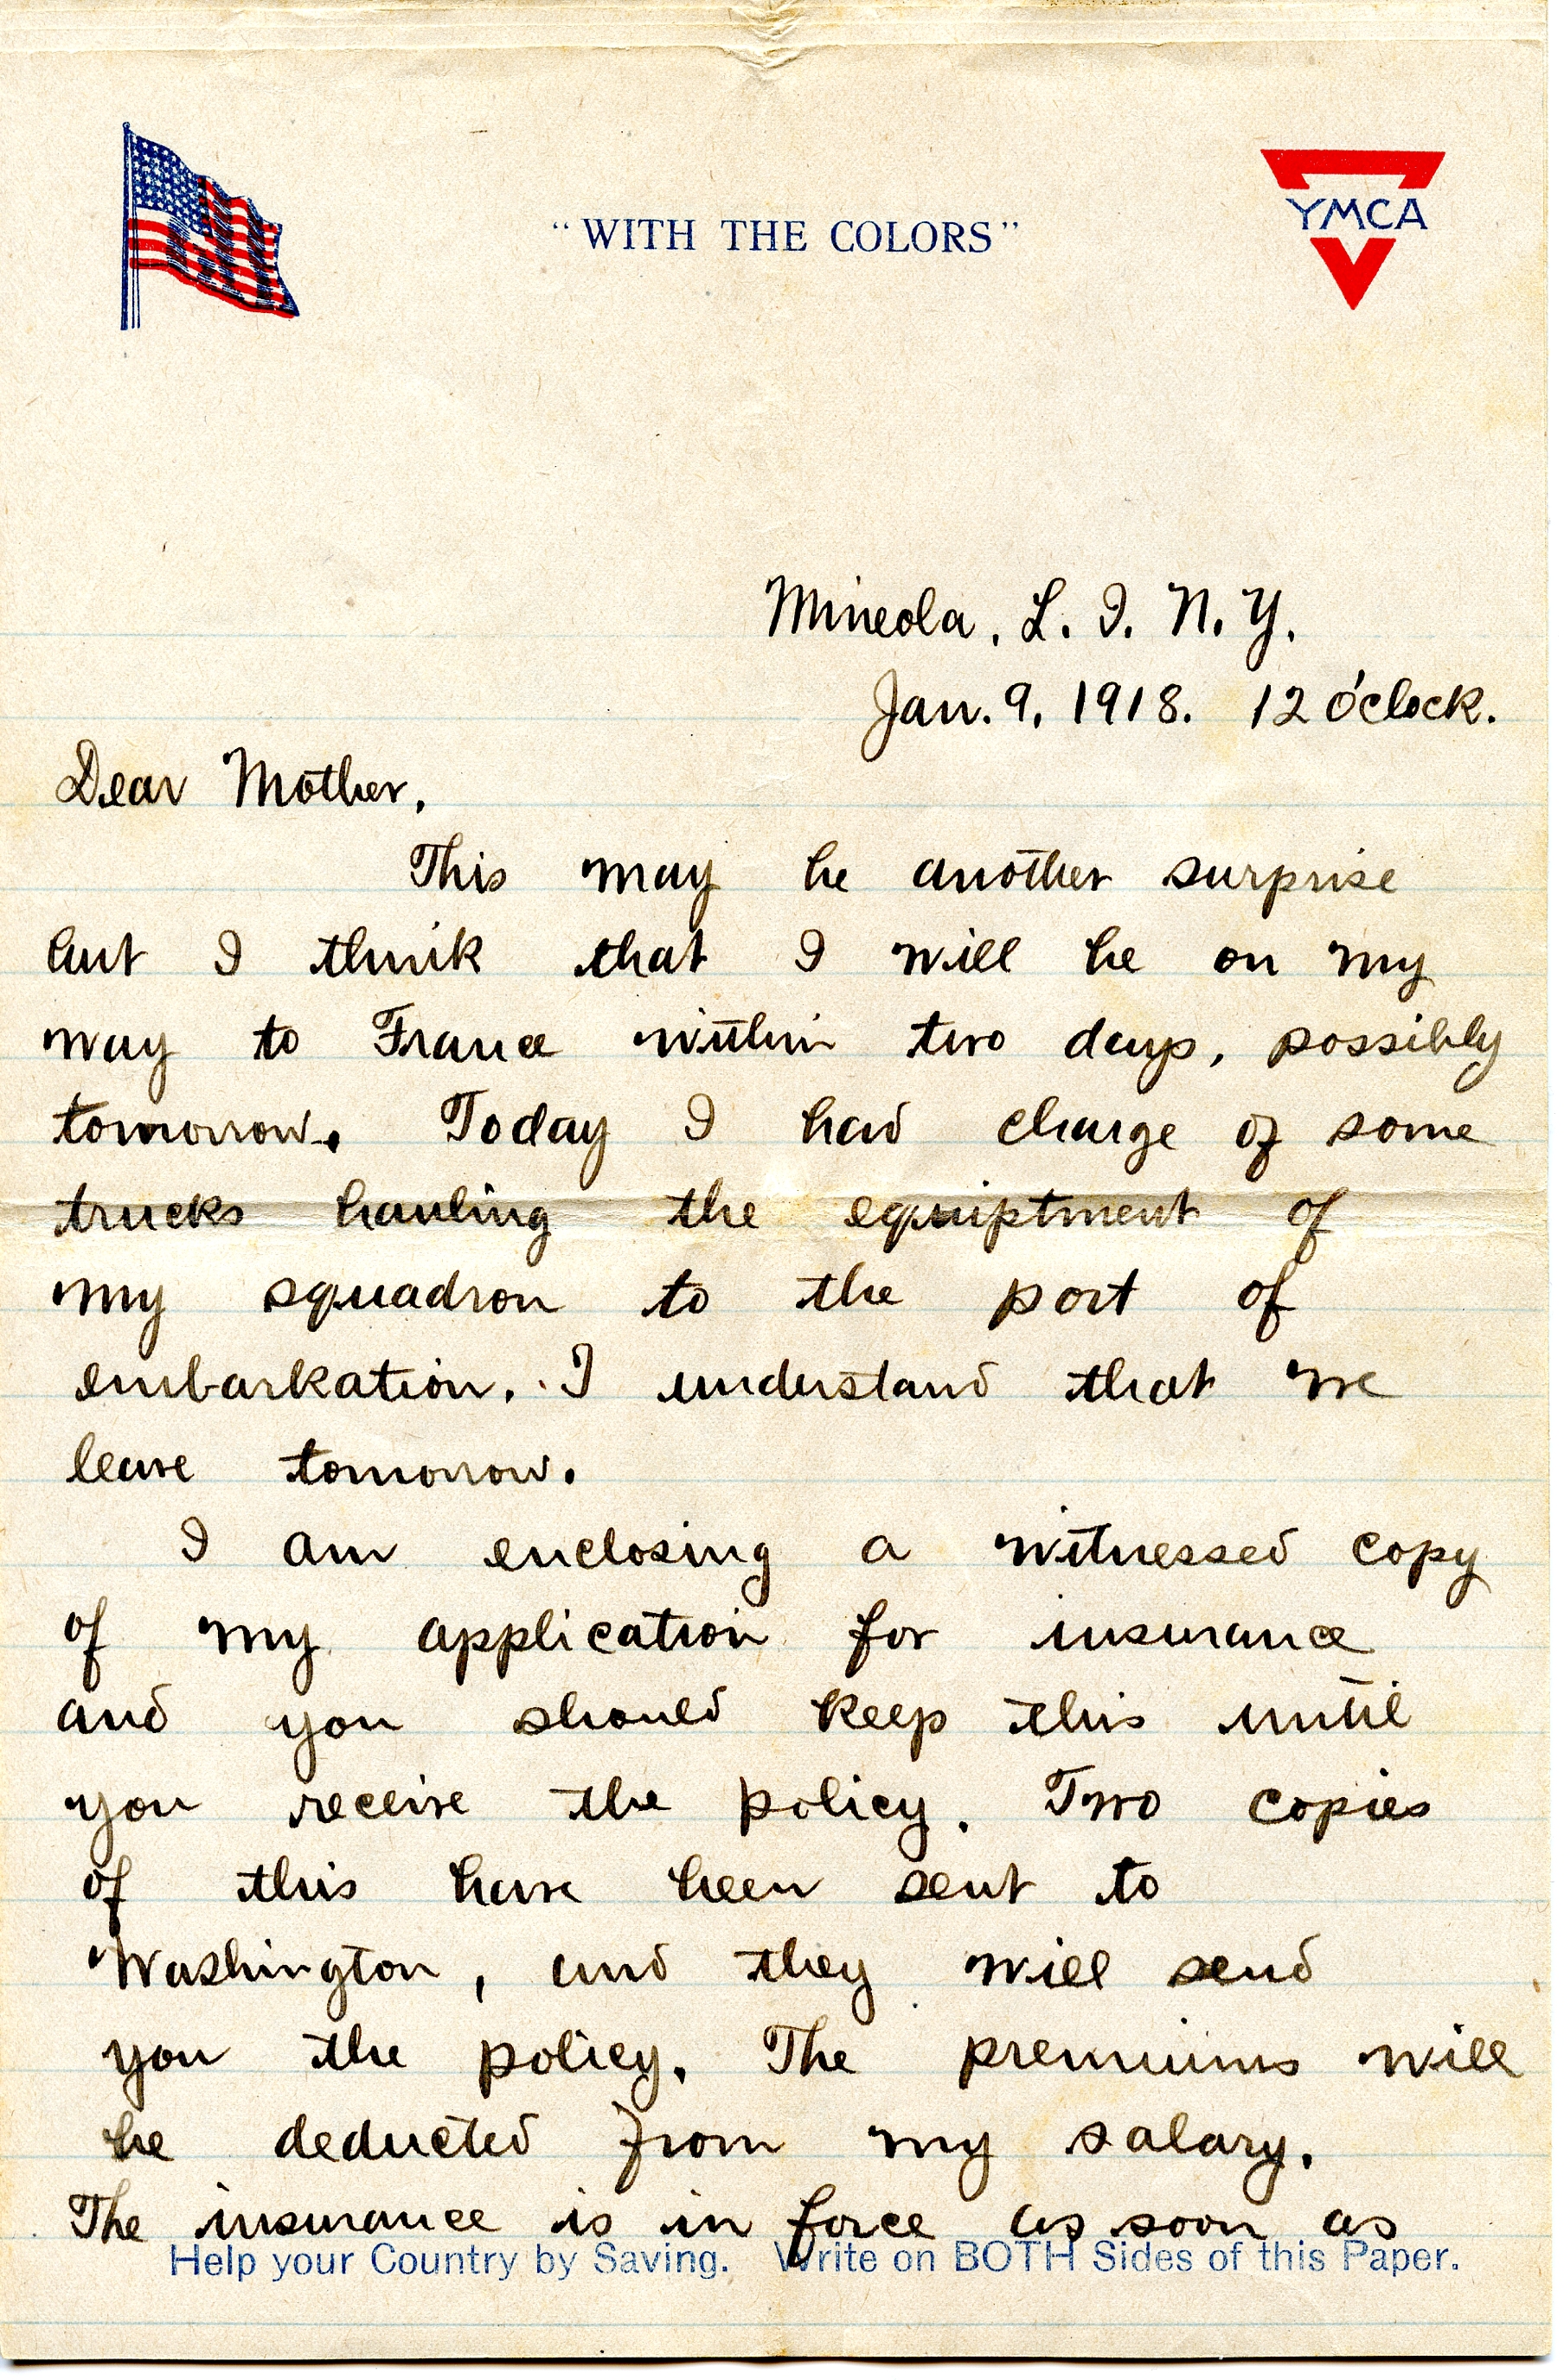 "WITH THE COLORS"
YMCA
Mineola, L. I. N. Y.
Jan. 9, 1918. 12 o'clock.
Dear Mother,
This may be another surprise
but I think that I will be on my
way to France within two days, possibly
tomorrow. Today I had charge of some
trucks hauling the equiptment of
my squadron to the port of
embarkation. I understand that we
leave tomorrow.
I am enclosing a witnessed copy
of my application for insurance
and you should keep this until
you receive the policy. Two copies
of this have been sent to
Washington, and they will send
you the policy. The premiums will
be deducted from my salary.
The insurance is in force as soon as
Help your Country by Saving. Write on BOTH Sides of this Paper.